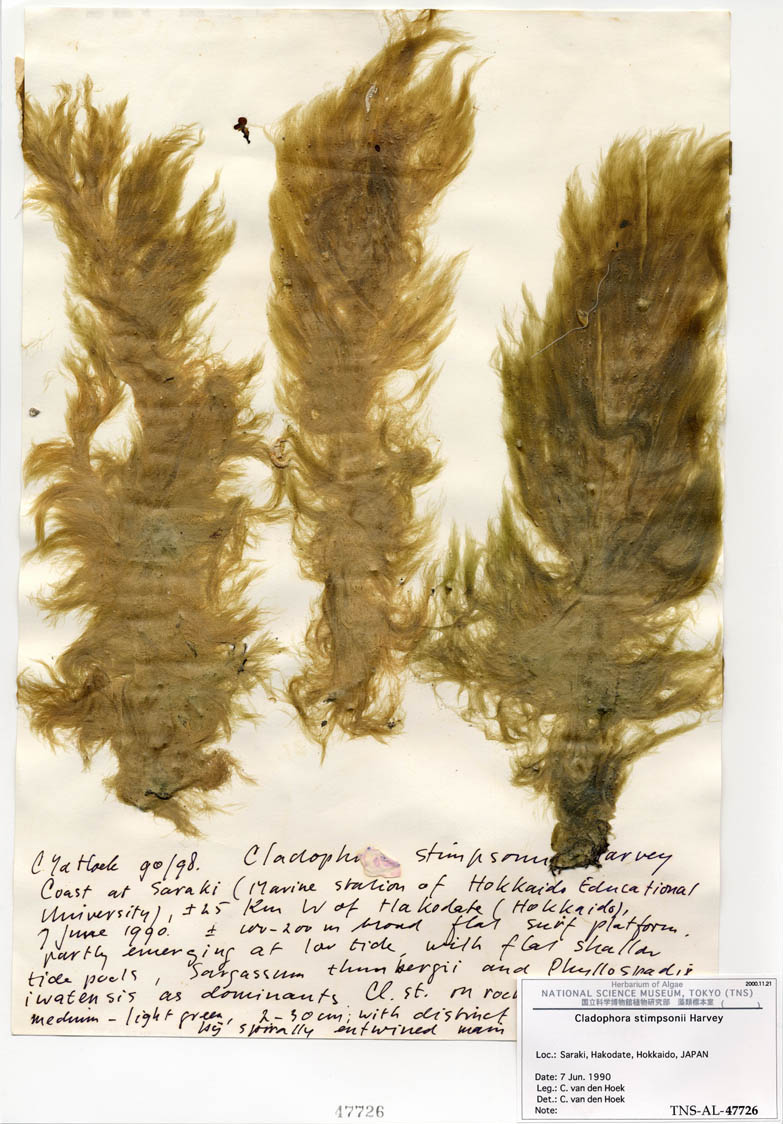 C vd Hoek 90/98. Cladopho stimpsonii Harvey
Coast at Saraki (Marine station of Hokkaido Educational
University), ± 25 Km W of Hakodate (Hokkaido),
7 June 1990. ± 100-200 m broad flat surf platform,
partly emerging at low tide, with flat shallow
tide pools, Sargassum thunbergii and Phyllospadix
iwatensis as dominants. Cl. st. on roc
medium - light green, 2-30 cm; with distinct
by spirally entwined main
47726
Herbarium of Algae 2000.11.21
NATIONAL SCIENCE MUSEUM, TOKYO (TNS)
国立科学博物館植物研究部 藻類標本室 ( )
Cladophora stimpsonii Harvey
Loc.: Saraki, Hakodate, Hokkaido, JAPAN
Date: 7 Jun. 1990
Leg.: C. van den Hoek
Det.: C. van den Hoek
Note: TNS-AL-47726